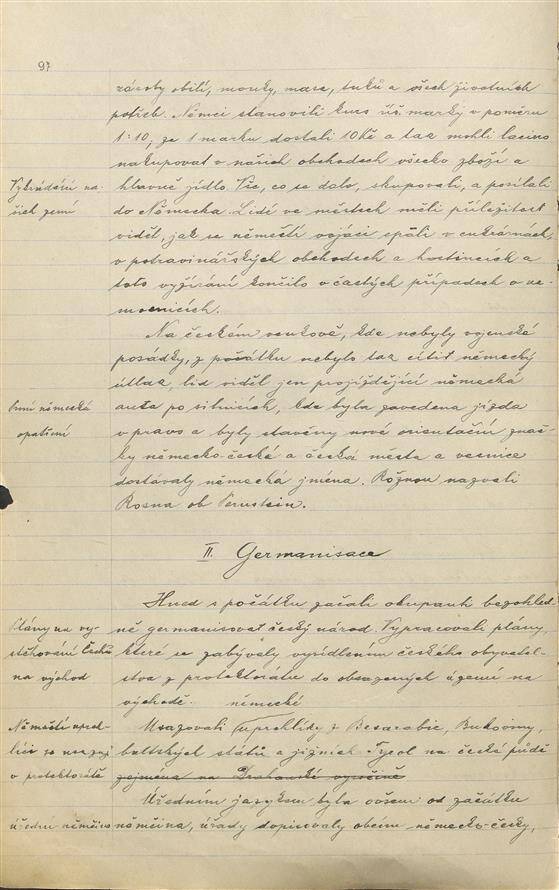 97
zásoby obilí, mouky, masa, tuků a všech životních
potřeb. Němci stanovili kurs říš. marky v poměru
1:10, za 1 marku dostali 10 Kč a tak mohli lacino
nakupovat v našich obchodech všecko zboží a
Vykrádání na-
šich zemí
hlavně jídlo. Vše, co se dalo, skupovali, a posílali
do Německa. Lidé ve městech měli příležitost
viděti, jak se němečtí vojáci cpali v cukrárnách,
v potravinářských obchodech a hostincích a
toto vyžírání končilo v častých případech v ne-
mocnicích.
Na českém venkově, kde nebyly vojenské
posádky, z počátku nebylo tak cítit německý
útlak, lid viděl jen projíždějící německá
První německá
opatření
auta po silnicích, kde byla zavedena jízda
vpravo a byly stavěny nové orientační znač-
ky německo-české a česká města a vesnice
dostávaly německá jména. Rožnou nazvali
Rosna ob Pernstein.
II. Germanisace
Hned s počátku začali okupanti bezohled-
Plány na vy-
stěhování Čechů
na východ
ně germanisovat český národ. Vypracovali plány,
které se zabývaly vysídlením českého obyvatel-
stva z protektorátu do obsazených území na
východě.
německé
Němečtí uprch-
líci se usazují
v protektorátě
Usazovali uprchlíky z Besarabie, Bukoviny,
baltských států a jižních Tyrol na české půdě
zejména na Drahanské vysočině
Úředním jazykem byla ovšem od začátku
Úřední němčina
němčina, úřady dopisovaly obcím německo-česky,